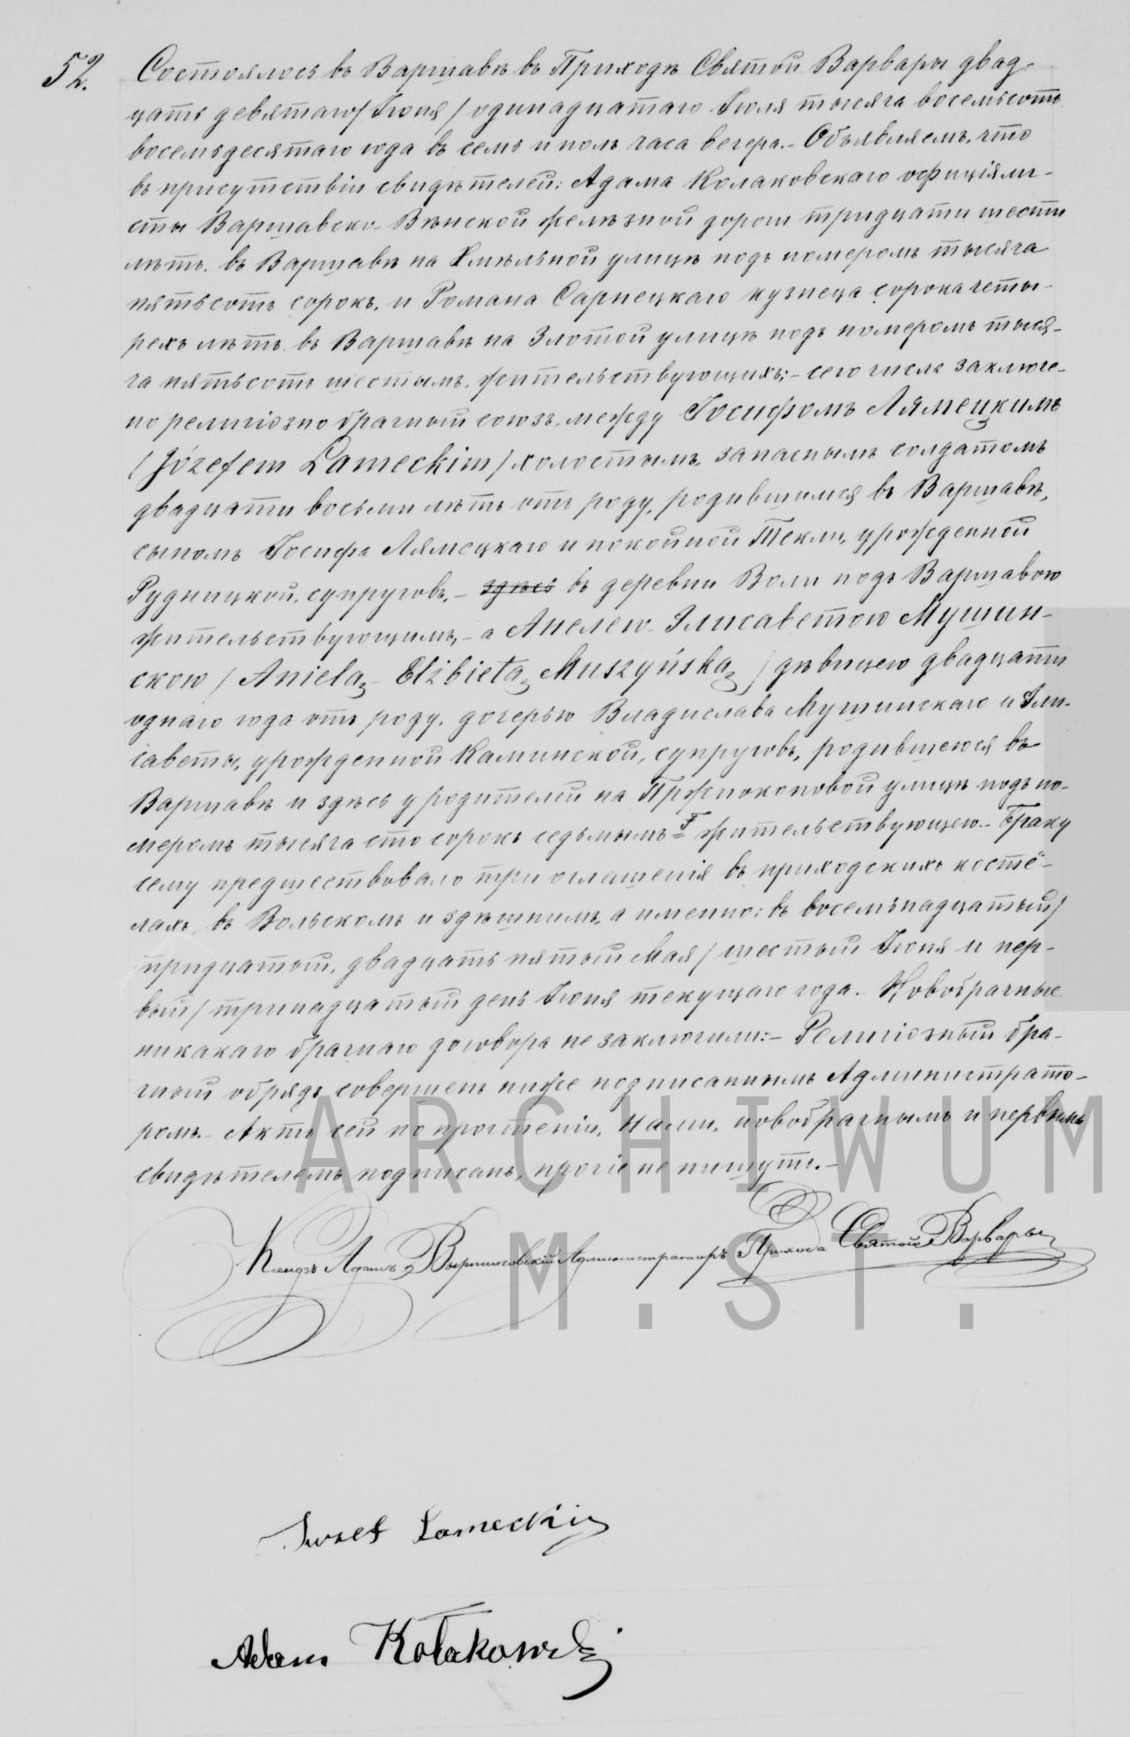 52. Состоялось въ Варшавѣ въ Приходѣ Святой Варвары двад-
цать девятаго/Іюня/одинадцатаго Іюля тысяча восемьсотъ
восемьдесятаго года въ семь и полъ часа вечера.- Объявляемъ, что
въ присутствіи свидѣтелей: Адама Колаковскаго официяли-
сты Варшавско-Вѣнской желѣзной дороги тридцати шести
лѣтъ, въ Варшавѣ на Хмѣльной улицѣ подъ номеромъ тысяча
пятьсотъ сорокъ, и Романа Сарнецкаго кузнеца сорока четы-
рехъ лѣтъ въ Варшавѣ на Злотой улицѣ подъ номеромъ тыся-
ча пятьсотъ шестымъ, жительствующихъ;- сего числа заключе-
но религіозно брачный союзъ между Іосифомъ Лямецкимъ
(Józefem Lameckim) холостымъ, запаснымъ солдатомъ
двадцати восьми лѣтъ отъ роду, родившимся въ Варшавѣ,
сыномъ Іосифа Лямецкаго и покойной Текли, урожденной
Рудницкой, супруговъ,- здѣсь въ деревни Воли подъ Варшавою
жительствующимъ,- а Анелею-Элисаветою Мушин-
скою (Anielą-Elżbietą Muszyńską) дѣвицею двадцати
однаго года отъ роду, дочерью Владислава Мушинскаго и Эли-
саветы, урожденной Каминской, супруговъ, родившеюся въ
Варшавѣ и здѣсь у родителей на Пржиокоповой улицѣ подъ но-
меромъ тысяча сто сорокъ седьмымъ F жительствующею.- Браку
сему предшествовало три оглашенія въ приходскихъ костё-
лахъ, въ Вольскомъ и здѣшнимъ, а именно: въ восемьнадцатый/
тридцатый, двадцать пятый Мая/шестый Іюня и пер-
вый/тринадцатый день Іюня текущаго года.- Новобрачные
никакаго брачнаго договора не заключили:- Религіозный бра-
чный обрядъ совершенъ ниже подписаннымъ Администрато-
ромъ.- Актъ сей по прочтеніи, Нами, новобрачнымъ и первымъ
свидѣтелемъ подписанъ, прочіе не пишутъ.-
ARCHIWUM
Ксендзъ Адамъ Администраторъ Прихода Святой Варвары
M.ST.
Józef Lamecki
Adam Kołakowski